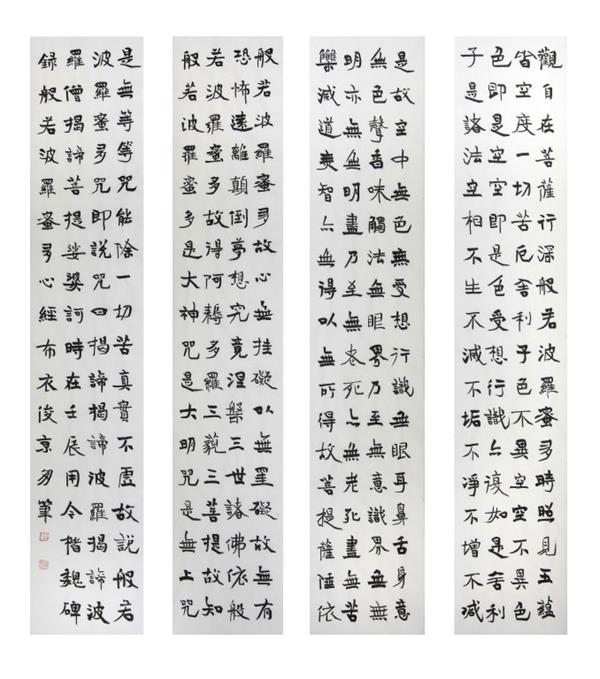 觀自在菩薩行深般若波羅蜜多時照見五蘊
皆空度一切苦厄舍利子色不異空空不異色
色即是空空即是色受想行識亦復如是舍利
子是諸法空相不生不滅不垢不淨不增不減
是故空中無色無受想行識無眼耳鼻舌身意
無色聲香味觸法無眼界乃至無意識界無無
明亦無無明盡乃至無老死亦無老死盡無苦
集滅道無智亦無得以無所得故菩提薩埵依
般若波羅蜜多故心無挂礙以無罣礙故無有
恐怖遠離顛倒夢想究竟涅槃三世諸佛依般
若波羅蜜多故得阿耨多羅三藐三菩提故知
般若波羅蜜多是大神咒是大明咒是無上咒
是無等等咒能除一切苦真實不虛故說般若
波羅蜜多咒即說咒曰揭諦揭諦波羅揭諦波
羅僧揭諦菩提娑婆訶時在壬辰用令楷魏碑
録般若波羅蜜多心經布衣俊京筆